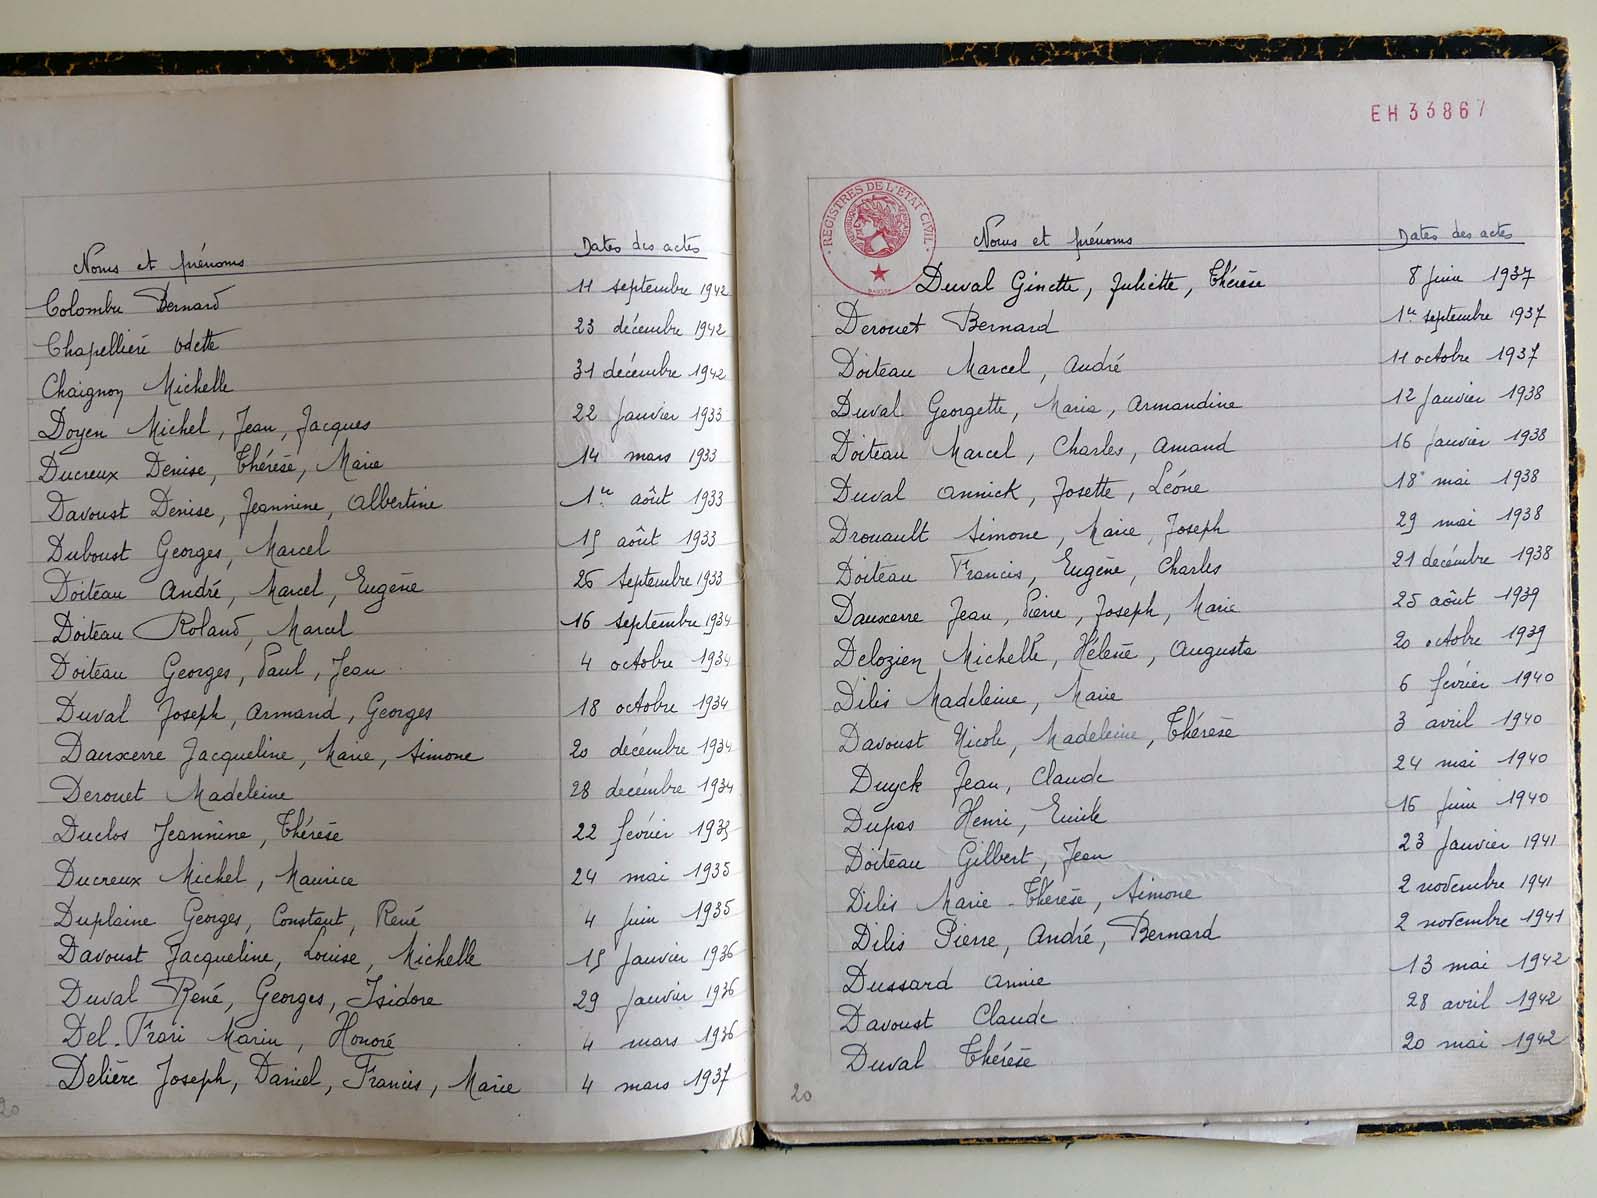 Noms et prénoms Dates des actes
Colombu Bernard 11 septembre 1942
Chapellière Odette 23 décembre 1942
Chaignon Michelle 31 décembre 1942
Doyen Michel, Jean, Jacques 22 Janvier 1933
Ducreux Denise, Thérèse, Marie 14 mars 1933
Davoust Denise, Jeannine, Albertine 1er août 1933
Duboust Georges, Marcel 15 août 1933
Doiteau André, Marcel, Eugène 26 Septembre 1933
Doiteau Roland, Marcel 16 septembre 1934
Doiteau Georges, Paul, Jean 4 octobre 1934
Duval Joseph, Armand, Georges 18 octobre 1934
Dauxerre Jacqueline, Marie, Simone 20 décembre 1934
Derouet Madeleine 28 décembre 1934
Duclos Jeannine, Thérèse 22 février 1935
Ducreux Michel, Maurice 24 mai 1935
Duplaine Georges, Constant, René 4 Juin 1935
Davoust Jacqueline, Louise, Michelle 15 Janvier 1936
Duval René, Georges, Isidore 29 Janvier 1936
Del-Frari Marin, Honoré 4 mars 1936
Delière Joseph, Daniel, Francis, Marie 4 mars 1937
20
EH33867
REGISTRES DE L'ETAT CIVIL
Noms et prénoms Dates des actes
Duval Ginette, Juliette, Thérèse 8 Juin 1937
Derouet Bernard 1er septembre 1937
Doiteau Marcel, André 11 octobre 1937
Duval Georgette, Maria, Armandine 12 Janvier 1938
Doiteau Marcel, Charles, Amand 16 Janvier 1938
Duval Annick, Josette, Léone 18 mai 1938
Drouault Simone, Marie, Joseph 29 mai 1938
Doiteau Francis, Eugène, Charles 21 décembre 1938
Dauxerre Jean, Pierre, Joseph, Marie 25 août 1939
Delozien Michelle, Hélène, Augusta 20 octobre 1939
Dilis Madeleine, Marie 6 février 1940
Davoust Nicole, Madeleine, Thérèse 3 avril 1940
Duyck Jean, Claude 24 mai 1940
Dupas Henri, Emile 16 Juin 1940
Doiteau Gilbert, Jean 23 Janvier 1941
Dilis Marie-Thérèse, Simone 2 novembre 1941
Dilis Pierre, André, Bernard 2 novembre 1941
Dussard Annie 13 mai 1942
Davoust Claude 28 avril 1942
Duval Thérèse 20 mai 1942
20